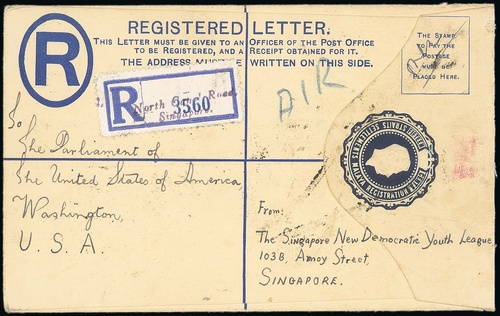 REGISTERED LETTER.
THIS LETTER MUST BE GIVEN TO AN OFFICER OF THE POST OFFICE
TO BE REGISTERED, AND A RECEIPT OBTAINED FOR IT.
THE ADDRESS MUST BE WRITTEN ON THIS SIDE.
R
THE STAMP
TO PAY THE
POSTAGE
MUST BE
PLACED HERE.
R
North Road,
Singapore.
3560
AIR
To
The Parliament of
The United States of America,
Washington,
U. S. A.
MALAYA REGISTRATION
From:
The Singapore New Democratic Youth League
103B, Amoy Street,
SINGAPORE.